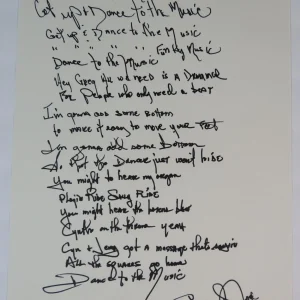 Get up & Dance to the Music
Get up & Dance to the Music
" " " " " Funky Music
Dance to the Music
Hey Greg All we need is a Drummer
For People who only need a beat
I'm gonna add some Bottom
to make it easy to move your Feet
I'm gonna add some Bottom
So that the Dancer just won't hide
You might to hear my organ
Playin Ride Sally Ride
You might hear the horns blow
Cynthia on the throne yeah
Cyn & Jerry got a message that's sayin
All the squares go home
Dance to the Music